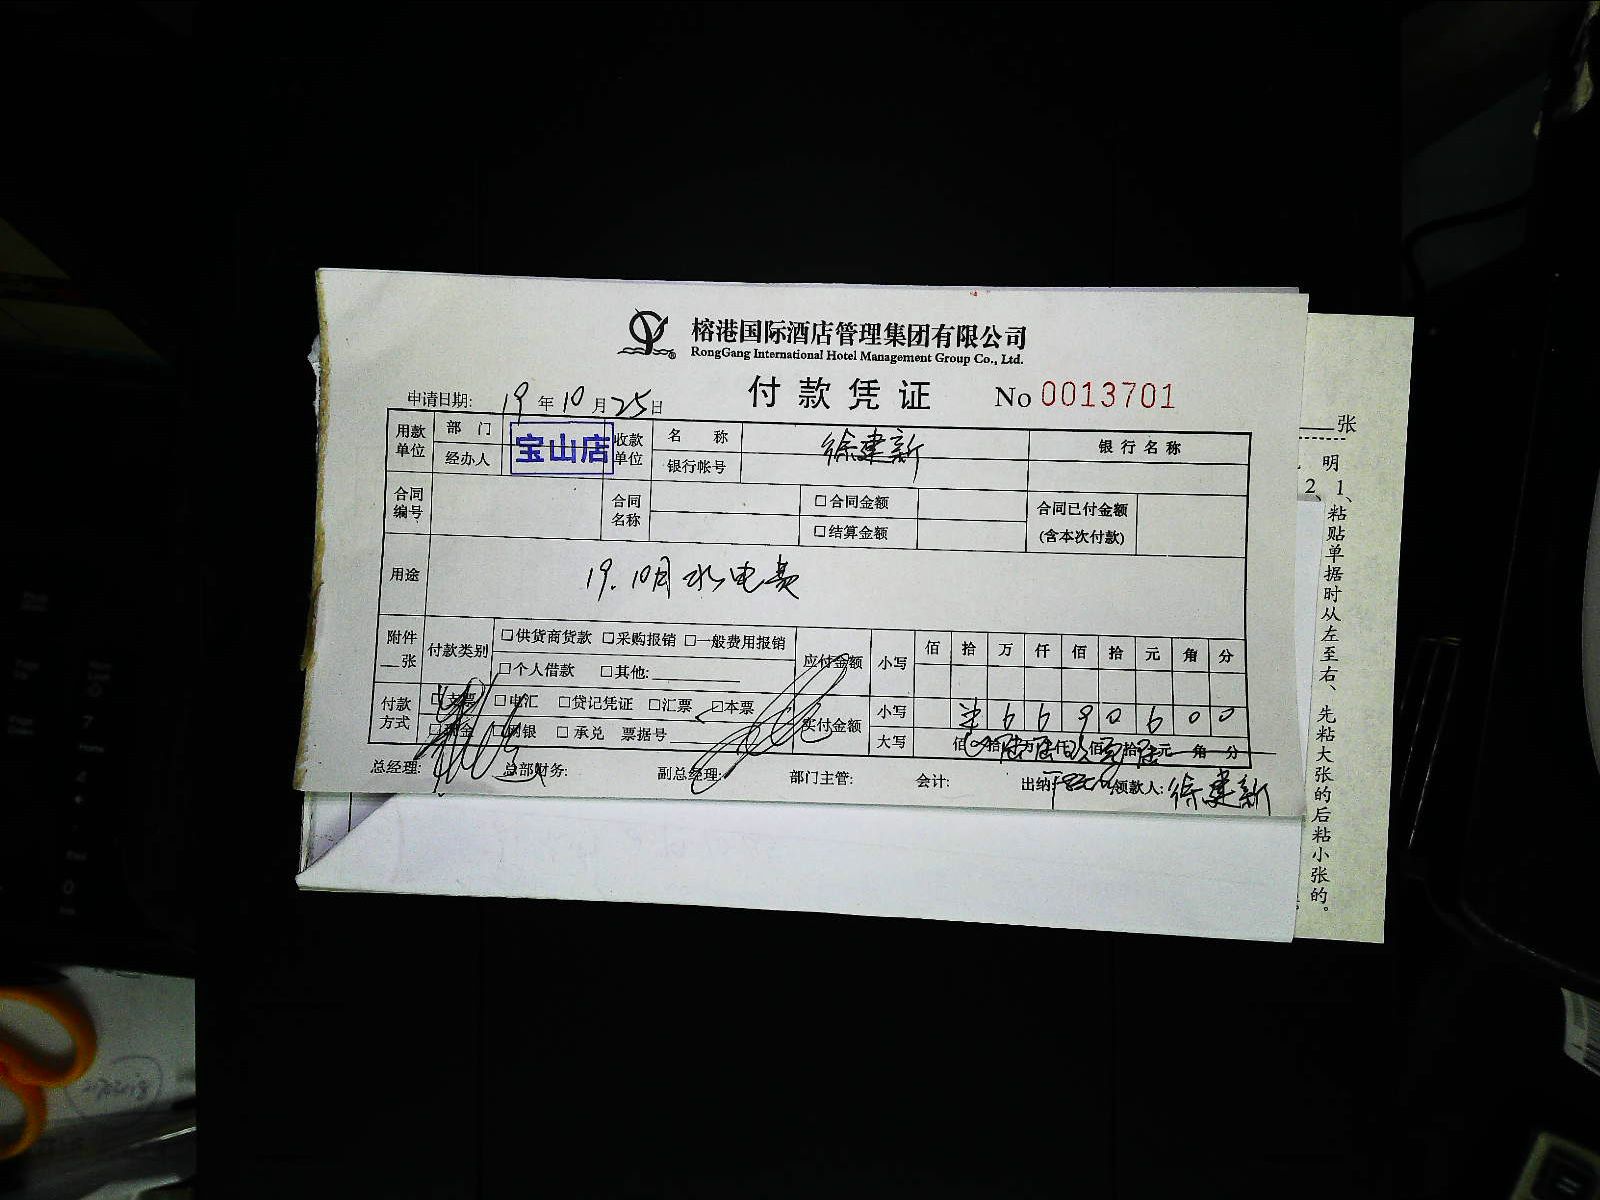 榕港国际酒店管理集团有限公司
RongGang International Hotel Management Group Co., Ltd.
付款凭证 No 0013701
申请日期: 19 年 10 月 25 日
用款单位 部门 宝山店 收款单位 名称 徐建新 银行名称
经办人 银行帐号
合同编号 合同名称 □合同金额 合同已付金额
□结算金额 (含本次付款)
用途 19.10月水电费
附件 张 付款类别 □供货商货款 □采购报销 □一般费用报销 应付金额 小写 佰 拾 万 仟 佰 拾 元 角 分
□个人借款 □其他:
付款方式 □支票 □电汇 □贷记凭证 □汇票 □本票 实付金额 小写 6 6 9 0 6 0 0
□现金 □网银 □承兑 票据号 大写 佰 拾陆万陆仟玖佰零拾陆元 角 分
总经理: 总部财务: 副总经理: 部门主管: 会计: 出纳 领款人: 徐建新
张
明
1、粘贴单据时从左至右、先粘大张的后粘小张的。
2、